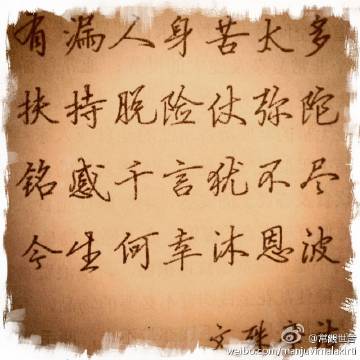 有漏人身苦太多
扶持脱险仗弥陀
铭感千言犹不尽
今生何幸沐恩波
文殊
@常晥世音
weibo.com/manjuvimalakirti